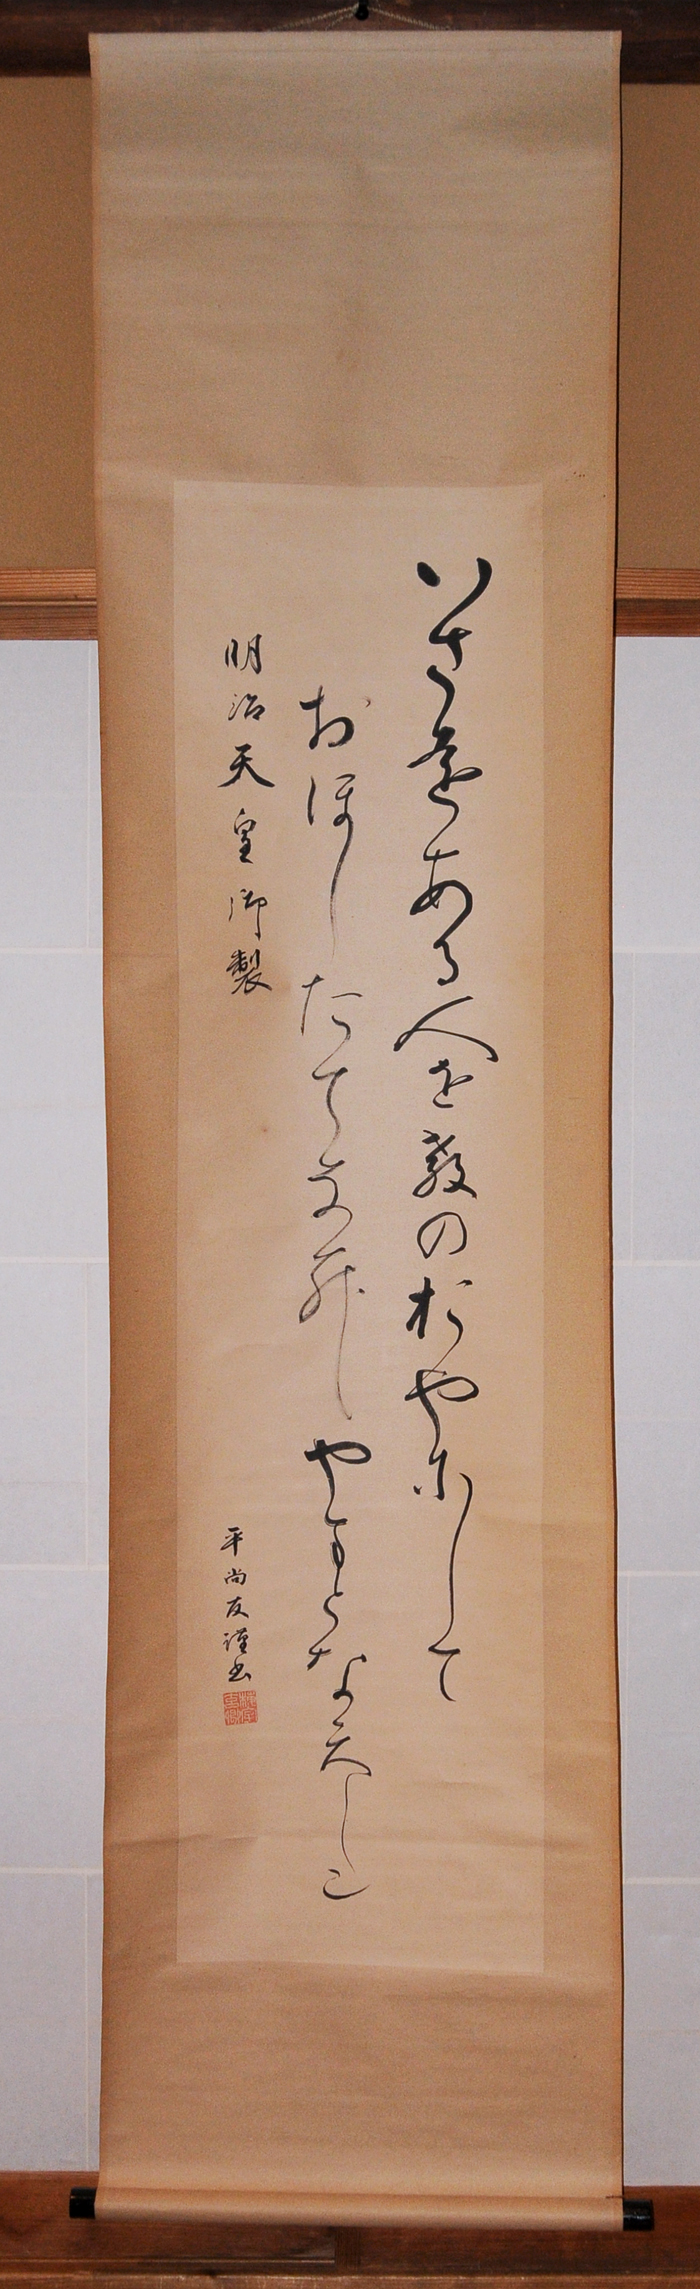 いさをある人を教のおやにして
おほしたてなむやまとなてしこ
明治天皇御製
平尚友謹書